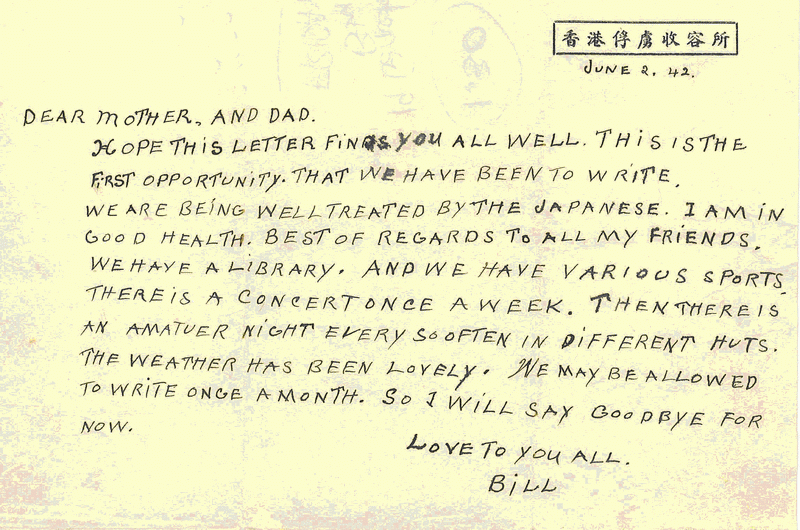 香港俘虜收容所
JUNE 2. 42.
DEAR MOTHER, AND DAD.
HOPE THIS LETTER FINDS YOU ALL WELL. THIS IS THE
FIRST OPPORTUNITY. THAT WE HAVE BEEN TO WRITE.
WE ARE BEING WELL TREATED BY THE JAPANESE. I AM IN
GOOD HEALTH. BEST OF REGARDS TO ALL MY FRIENDS.
WE HAVE A LIBRARY. AND WE HAVE VARIOUS SPORTS.
THERE IS A CONCERT ONCE A WEEK. THEN THERE IS
AN AMATUER NIGHT EVERY SO OFTEN IN DIFFERENT HUTS.
THE WEATHER HAS BEEN LOVELY. WE MAY BE ALLOWED
TO WRITE ONCE A MONTH. SO I WILL SAY GOODBYE FOR
NOW.
LOVE TO YOU ALL.
BILL